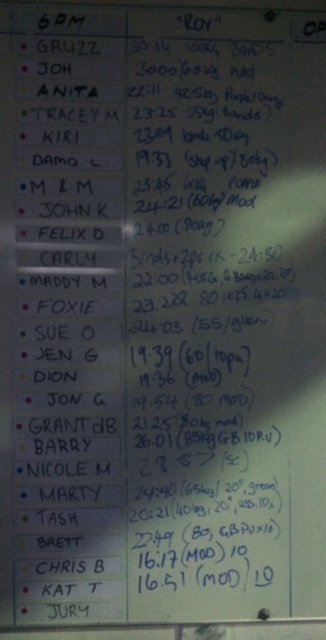 6PM "ROY"
GRUZZ 30:14 100kg Bands
JOH 3000/60kg mod
ANITA 22:11 42.5kg Purple/
TRACEY M 23:25 55kg (Bands)
KIRI 23:09 bands 50kg
DAMO L 19:33 (step up/80kg)
M & M 23:45 60kg
JOHN K 24:21 (60kg) mod
FELIX D 24:00 (80kg)
CARLY 3rnds + 2pu 1x - 24:30
MADDY M 22:00
FOXIE 23.22 80
SUE O 24:03 (55/green)
JEN G 19.39 (60/
DION 19:36 (mod)
JON G 19.54 (80 MOD)
GRANT dB 21.25 (80kg mod)
BARRY 26.01 (85kg GB 10P.U)
NICOLE M 28.57 /sc
MARTY 24:40 (65kg/20", green)
TASH 20:21 (40kg, 20",
BRETT 22:49 (80, GB PUx10)
CHRIS B 16.17 (MOD) 10
KAT T 16.51 (MOD) 10
JURY